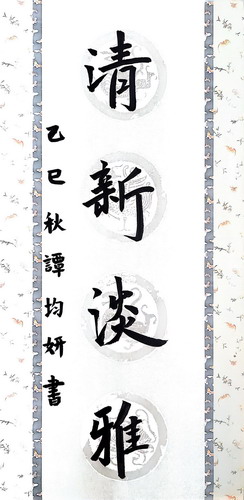 清新淡雅
乙巳秋譚均妍書